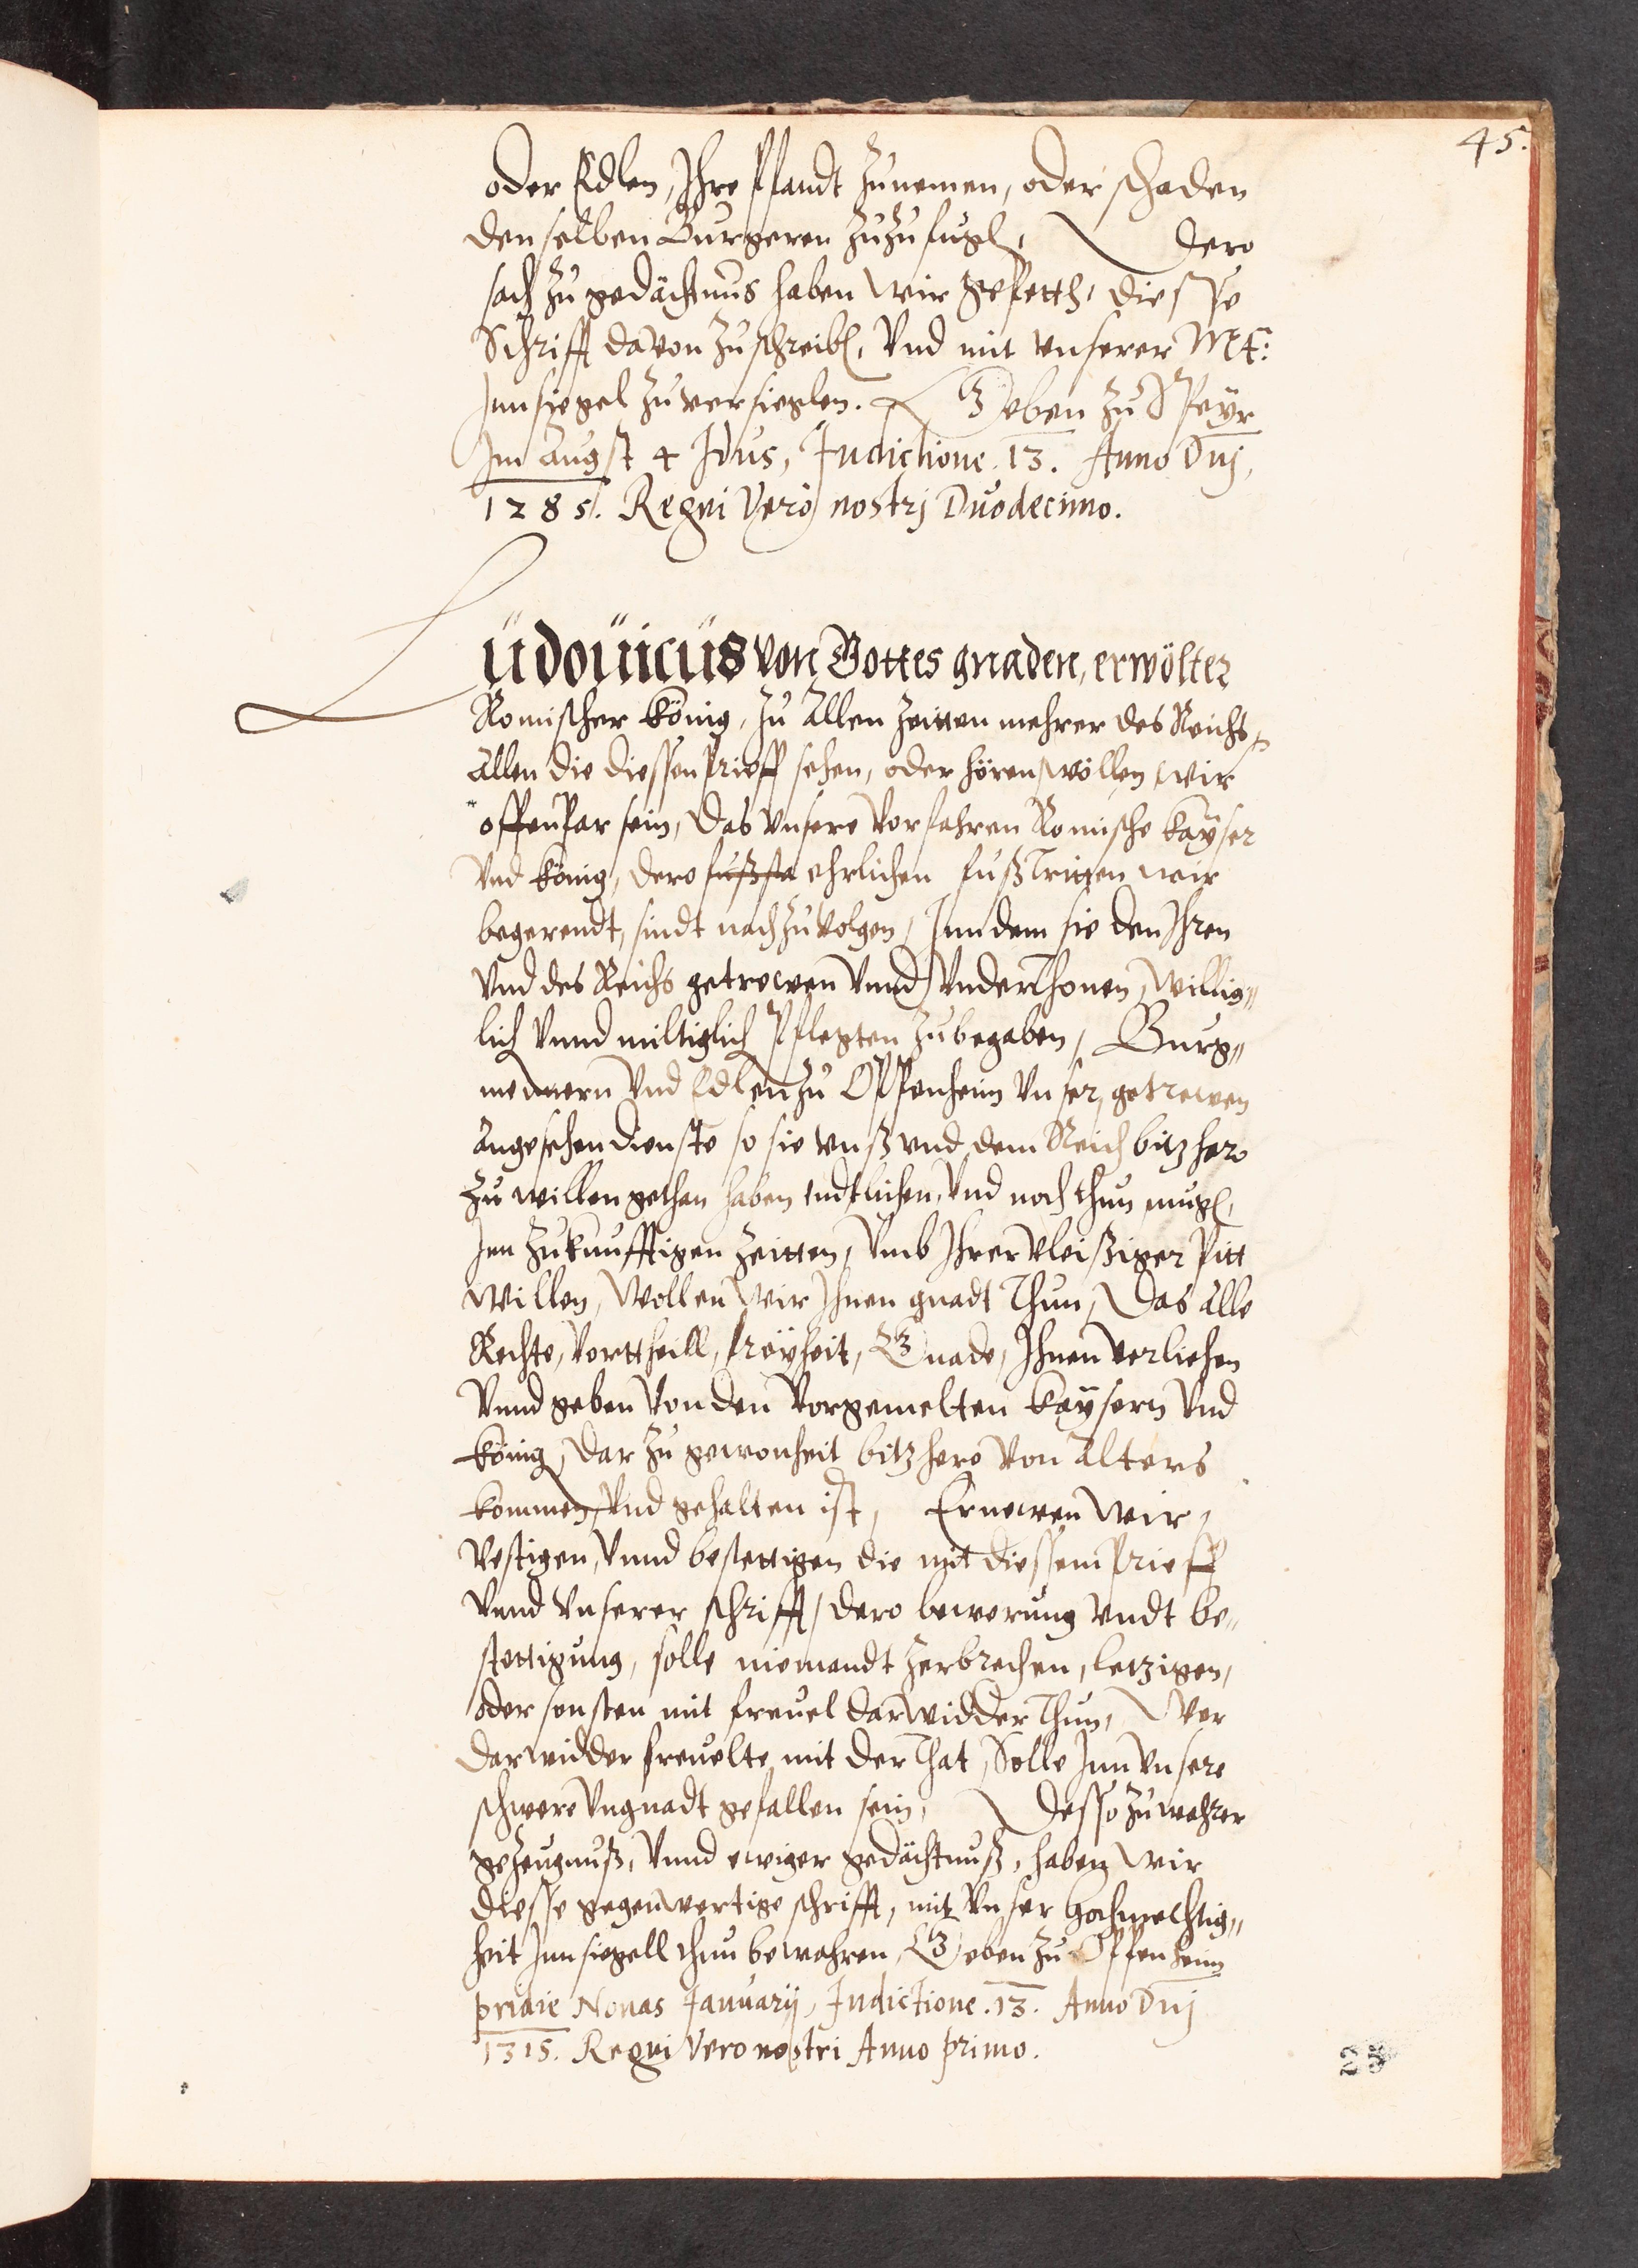 45.
oder Edlen, Ihre pfandt zunemen, oder schaden
denselben Burgeren zuzufugen, Dero
sach zu gedächtnus haben wir gesetth, diesse
Schrifft davon zuschreiben, Vnd mit vnserer Mt:
Innsiegel zuversieglen. Geben zu Speyr
Im Augst 4 Idus, Indictione. 13. Anno Dnj,
1285. Regni Vero nostrj Duodecimo.
Lüdoüicüs von Gottes gnaden, erwölter
Romischer König, zu allen zeitten mehrer des Reichs,
allen die diessen brieff sehen, oder hören, wöllen wir
offenbar sein, das vnsere Vorfahren Romische Kaÿser
Vnd König, dero fußsta ehrlichen fußtritten wir
begerendt, sindt nachzuvolgen, Inn dem sie den Ihren
Vnd des Reichs getrewen Vnnd Vnderthonen, willig„
lich Vnnd miltiglich Pflegten zubegaben, Burg„
mennern Vnd Edlen zu Oppenheim vnser, getrewen
angesehen dienste so sie vnß vnd dem Reich bitzhero
zu willen gethan haben endtlichen, Vnd noch thun mugen,
Inn zukunfftigen zeitten, Vmb Ihrer vleißiger Pitt
willen, wollen wir Ihnen gnadt thun, Das alle
Rechte, Vortheill, freÿheit, Gnade, Ihnen verliehen
Vnnd geben von den Vorgemelten Kaÿsern Vnd
König, dar zu gewonheit bitzhero von alters
kommen, Vnd gehalten ist, Ernewen wir,
Vestigen, Vnnd bestettigen die mit diessem brieff
Vnnd vnserer schrifft, dero bewerung vndt be„
stettigung, solle niemandt zerbrechen, letzigen,
oder sonsten mit freuel darwidder thun, Wer
darwidder freuelte mit der that, Solle Inn vnsere
schwere Vngnadt gefallen sein, Desse zu wahrer
gezeugnuß, Vnnd ewiger gedächtnuß, haben wir
diesse gegenwertige schrifft, mit vnser hochmechtig„
heit Innsiegell thun bewahren, Geben zu Oppenheim
pridie Nonas Januarij, Indictione. 13. Anno Dnj
1315. Regni Vero nostri Anno primo.
25